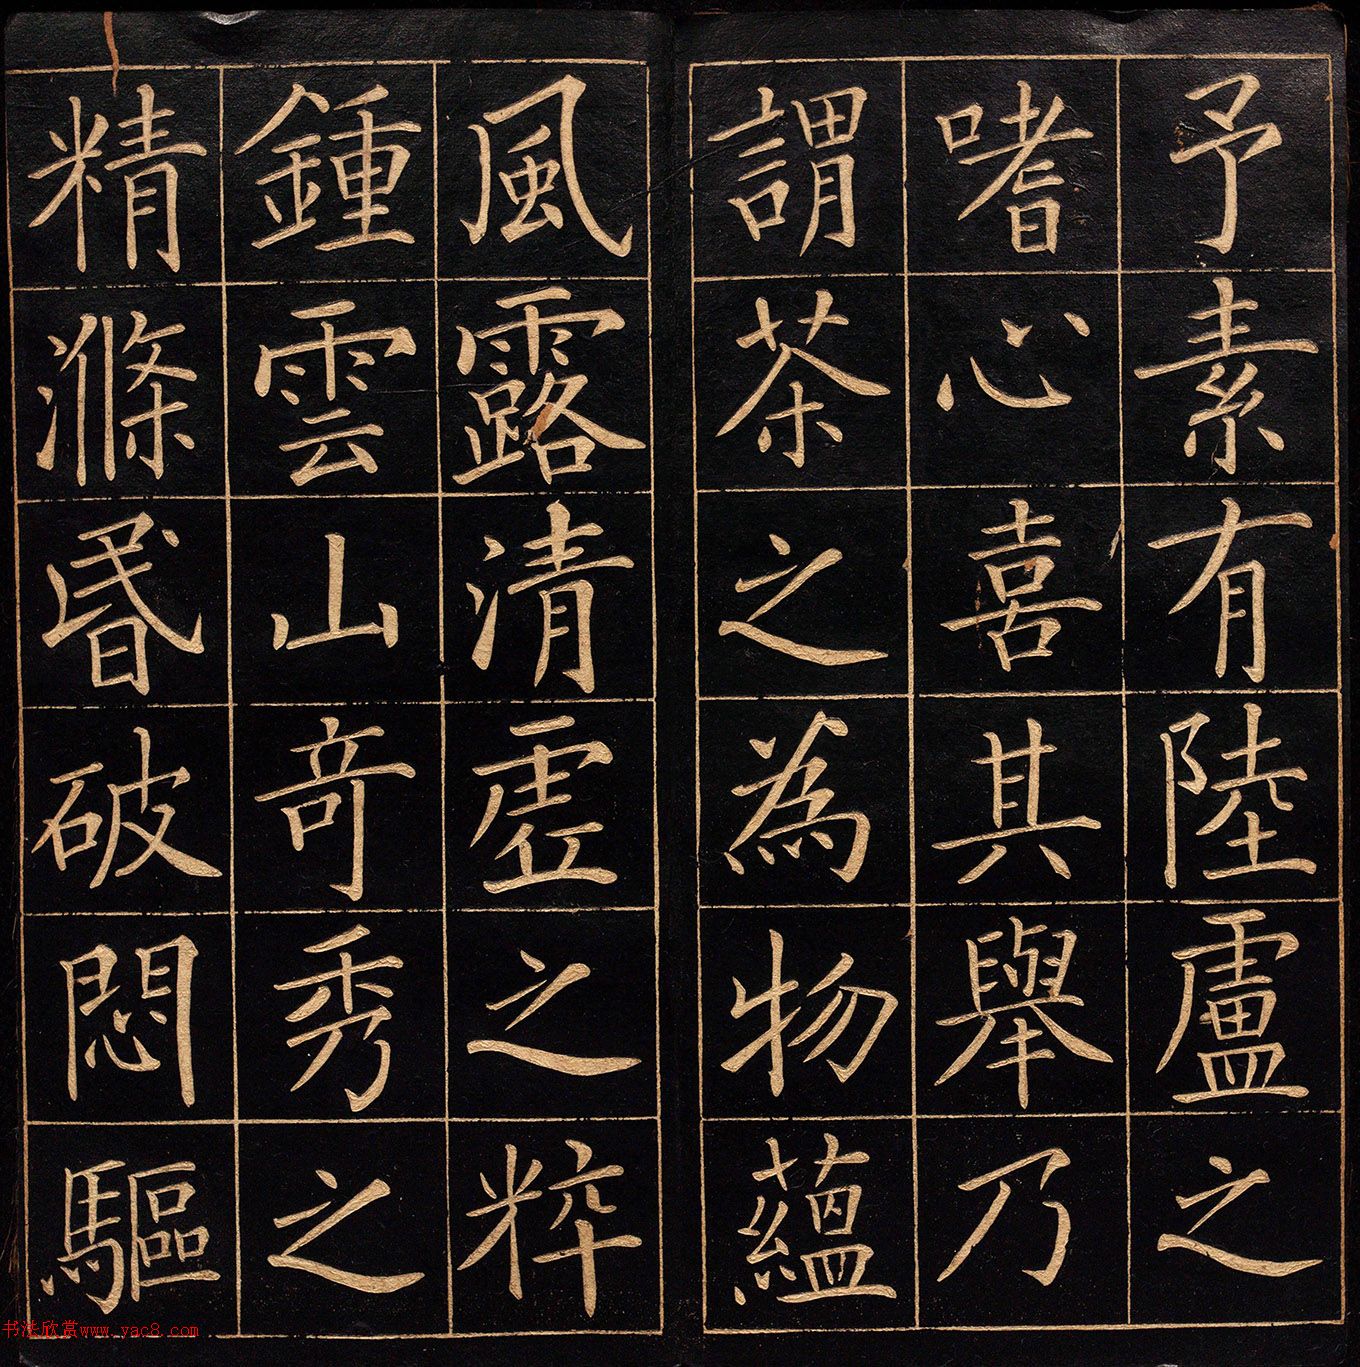 予素有陸盧之
嗜心喜其舉乃
謂茶之為物蘊
風露清虛之粹
鍾雲山奇秀之
精滌昬破悶驅
书法欣赏www.yac8.com